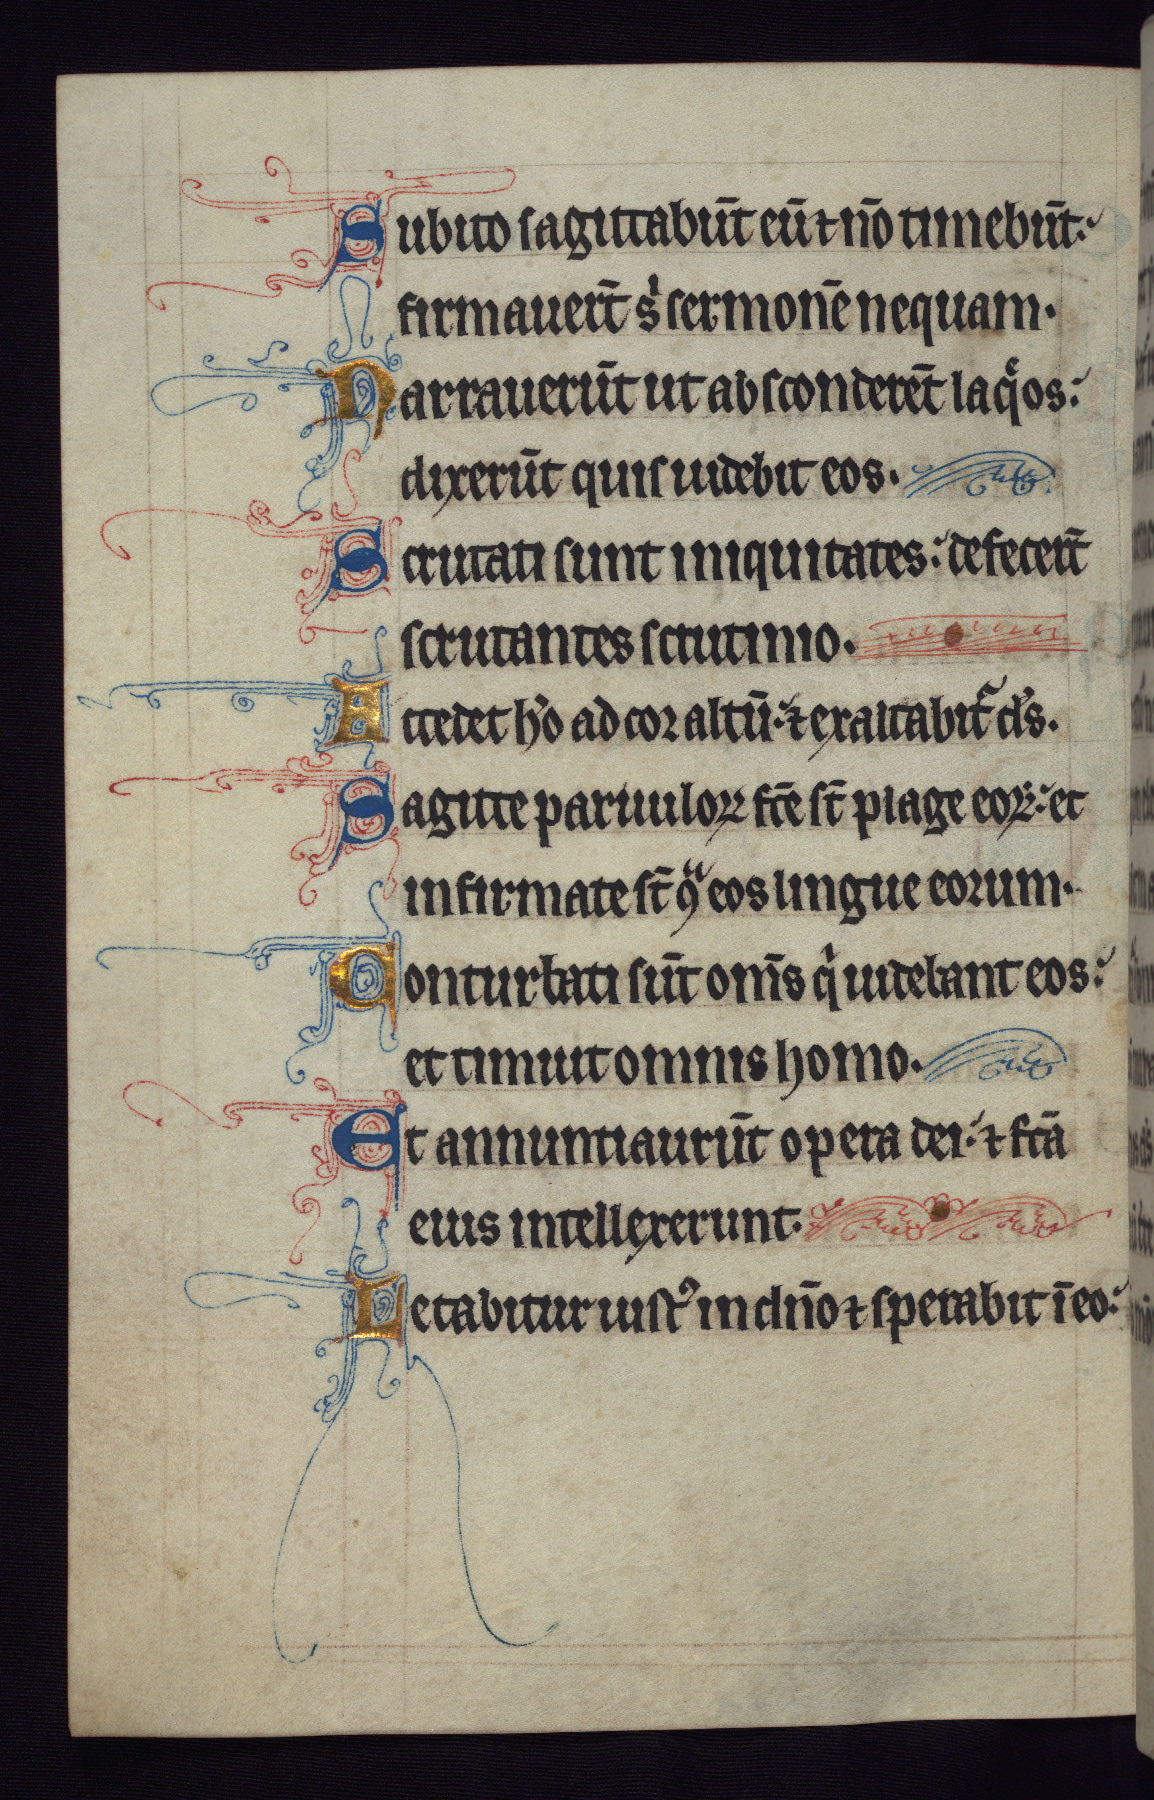 Subito sagittabūt eū ⁊ nō timebūt:
firmauerūt sⁱ sermonē nequam.
Narrauerūt ut absconderēt laqͦos:
dixerūt quis uidebit eos.
Scrutati sunt iniquitates: defecerūt
scrutantes scrutinio.
Accedet hō ad cor altū: ⁊ exaltabit᷑ ds̄.
Sagitte paruuloꝝ fc̄e st̄ plage eoꝝ: et
infirmate st̄ ꝯᵃ eos lingue eorum.
Conturbati sūt om̄s qⁱ uidebant eos:
et timuit omnis homo.
Et annuntiaurūt opera dei: ⁊ fc̄a
eius intellexerunt.
Letabitur iustꝰ in dn̄o ⁊ sperabit ī eo: